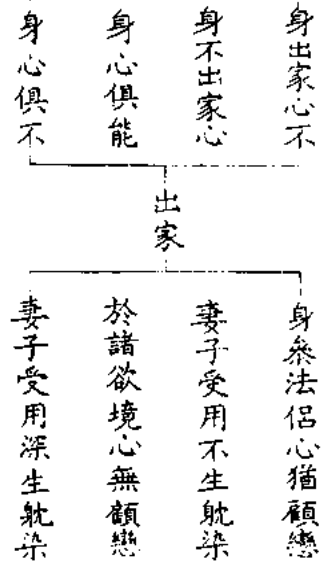 身出家心不
身不出家心
身心俱能
身心俱不
出家
身叅法侶心猶顧戀
妻子受用不生躭染
於諸欲境心無顧戀
妻子受用深生躭染